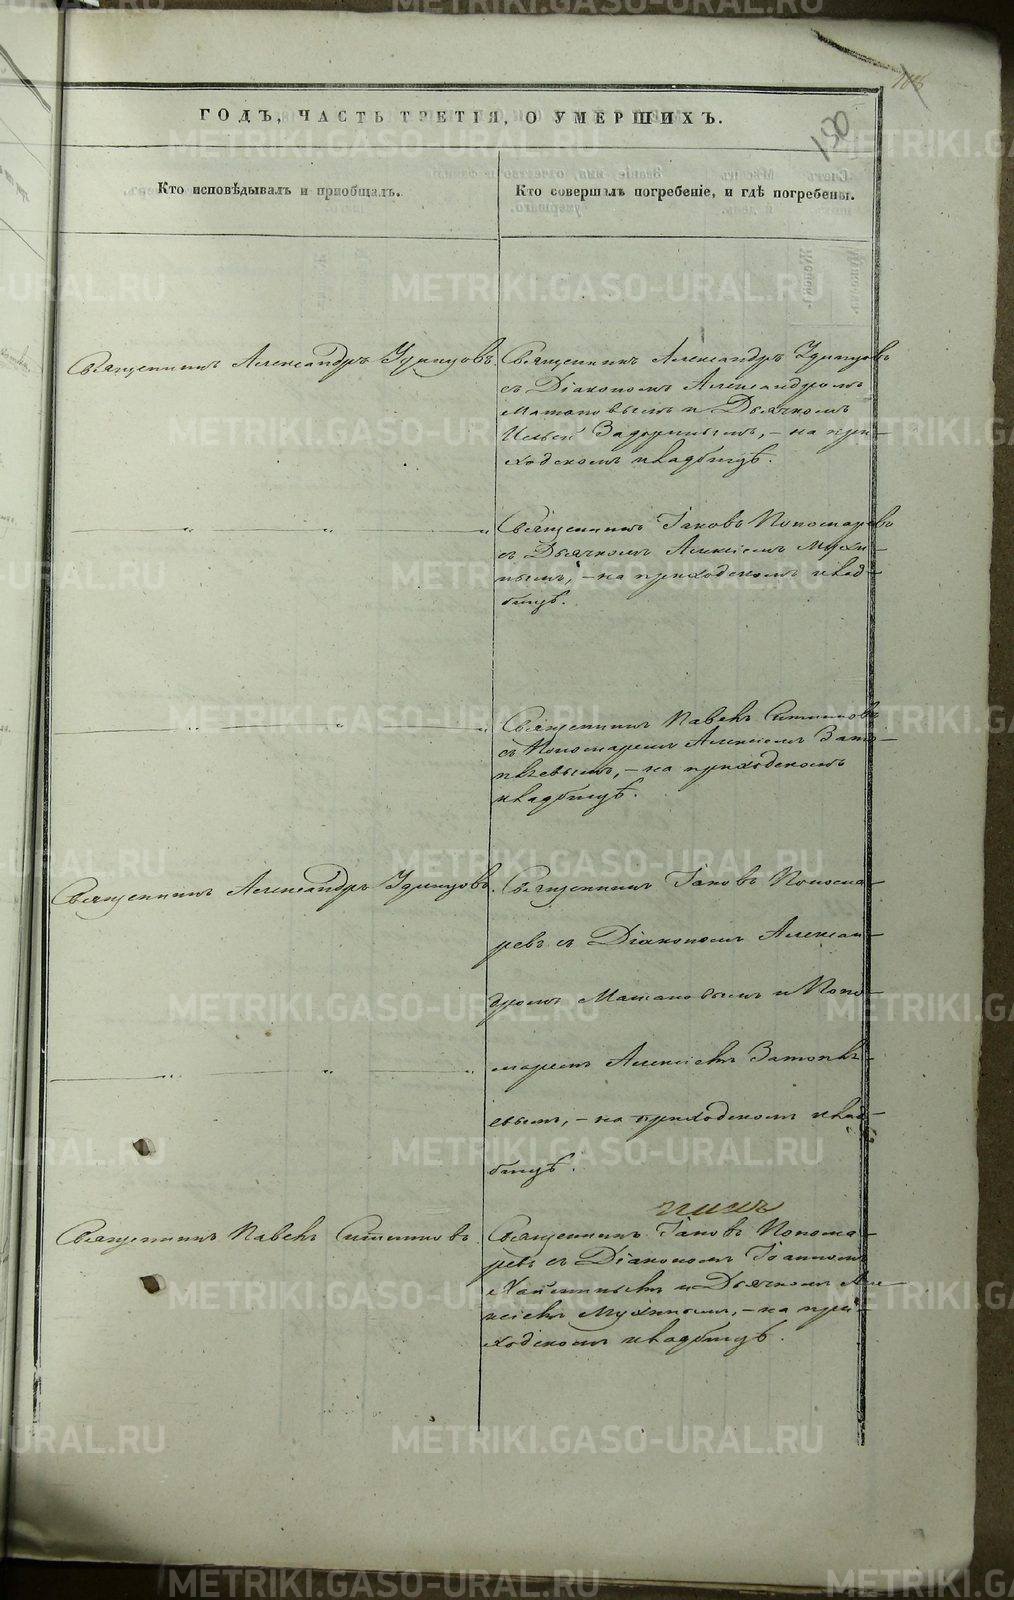 150
ГОДЪ, ЧАСТЬ ТРЕТІЯ, О УМЕРШИХЪ.
Кто исповѣдывалъ и пріобщалъ.
Кто совершалъ погребеніе, и гдѣ погребены.
Священникъ Александръ Удинцовъ.
Священникъ Александръ Удинцовъ
съ Діакономъ Александромъ
и Дьячкомъ
— на при-
ходскомъ кладбищѣ.
— „ — „ — „
Священникъ Іаковъ Пономаревъ
съ Дьячкомъ Алексіемъ Мухи-
нымъ, — на приходскомъ клад-
бищѣ.
— „ — „ — „
Священникъ Павелъ Ситниковъ
съ Пономаремъ Алексіемъ Зато-
плевымъ, — на приходскомъ
кладбищѣ.
Священникъ Александръ Удинцовъ.
Священникъ Іаковъ Понома-
ревъ съ Діакономъ Алексан-
дромъ и Поно-
маремъ Алексіемъ Затопле-
евымъ, — на приходскомъ клад-
бищѣ.
— „ — „ — „
Священникъ Павелъ Ситниковъ.
Священникъ Іаковъ Понома-
ревъ съ Діакономъ Іоанномъ
и Дьячкомъ Але-
ксіемъ Мухинымъ, — на при-
ходскомъ кладбищѣ.
METRIKI.GASO-URAL.RU